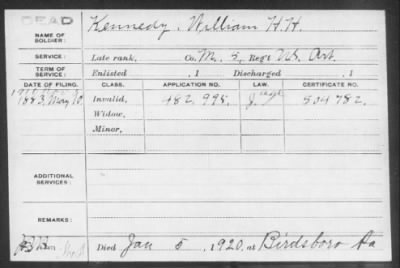 DEAD
NAME OF SOLDIER: Kennedy, William H.H.
SERVICE: Late rank, Co. M, 5, Reg't U.S. Art.
TERM OF SERVICE: Enlisted , 1 Discharged , 1
DATE OF FILING. CLASS. APPLICATION NO. LAW. CERTIFICATE NO.
1883, May 10. Invalid, 482.995. 504782.
Widow,
Minor,
ADDITIONAL SERVICES:
REMARKS:
Died Jan 5, 1920, at Birdsboro Pa